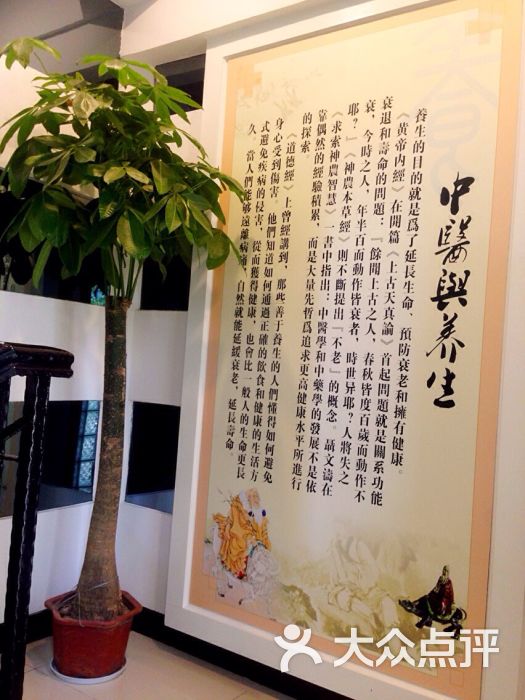 中醫與养生
養生的目的就是爲了延長生命、預防衰老和擁有健康。
《黄帝内經》在開篇《上古天真論》首起問題就是關系功能
衰退和壽命的問題：『餘聞上古之人，春秋皆度百歲而動作不
衰，今時之人，年半百而動作皆衰者，時世异耶？人將失之
耶？』《神農本草經》則不斷提出『不老』的概念。聶文濤在
《求索神農智慧》一書中指出：中醫學和中藥學的發展不是依
靠偶然的經驗積累，而是大量先哲爲追求更高健康水平所進行
的探索
《道德經》上曾經講到，那些善于養生的人們懂得如何避免
身心受到傷害。他們知道如何通過正確的飲食和健康的生活方
式避免疾病的侵害，從而獲得健康，也會比一般人的生命更長
久。當人們能够遠離病痛，自然就能延緩衰老，延長壽命。
大众点评